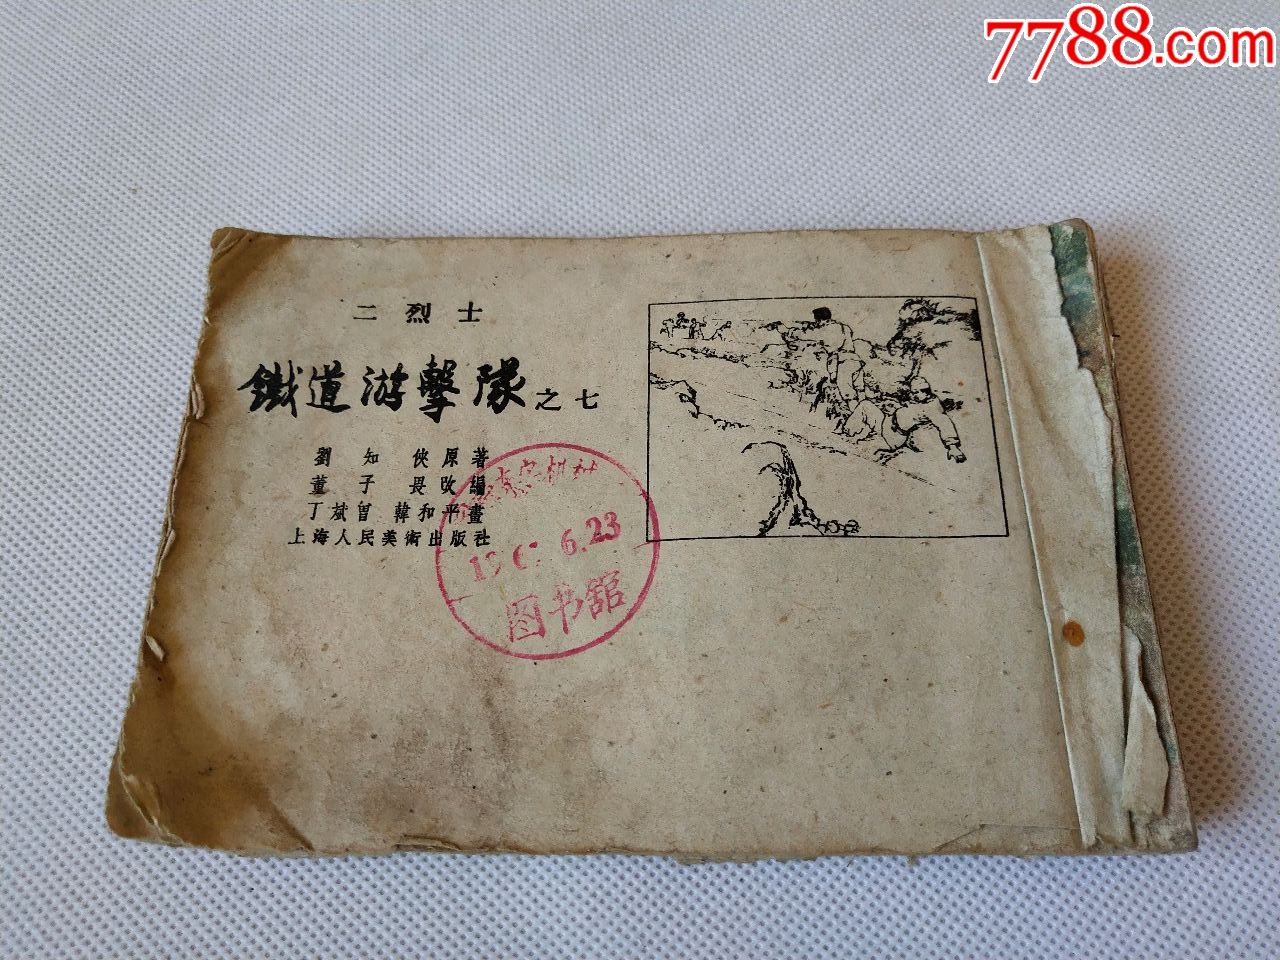 7788.com
二烈士
鐵道游擊隊之七
劉知俠原著
董子畏改編
丁斌曾 韓和平畫
上海人民美術出版社
6.23
图书舘